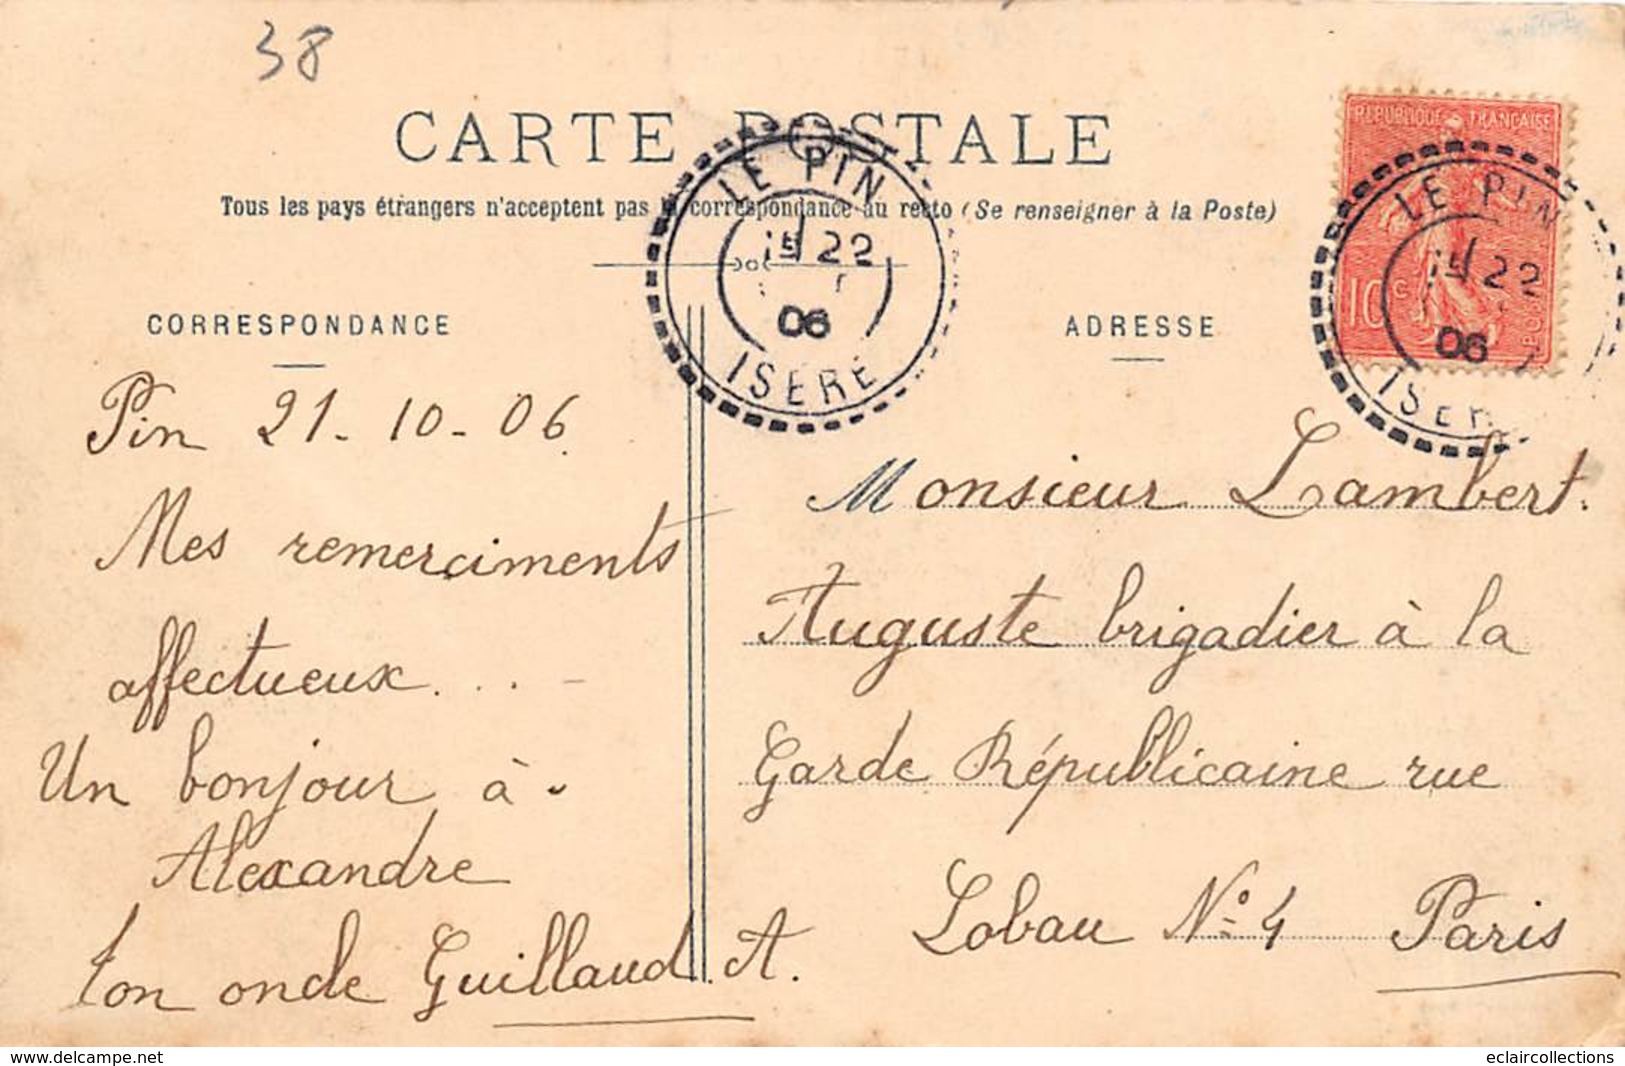 38
CARTE POSTALE
Tous les pays étrangers n'acceptent pas la correspondance au recto (Se renseigner à la Poste)
RÉPUBLIQUE FRANÇAISE
10 c
POSTES
LE PIN
15 22
06
ISERE
LE PIN
15 22
06
ISERE
CORRESPONDANCE
Pin 21-10-06.
Mes remerciments
affectueux...
Un bonjour à
Alexandre
ton oncle Guillaud. A.
ADRESSE
Monsieur Lambert.
Auguste brigadier à la
Garde Républicaine rue
Lobau No 4 Paris
www.delcampe.net
eclaircollections